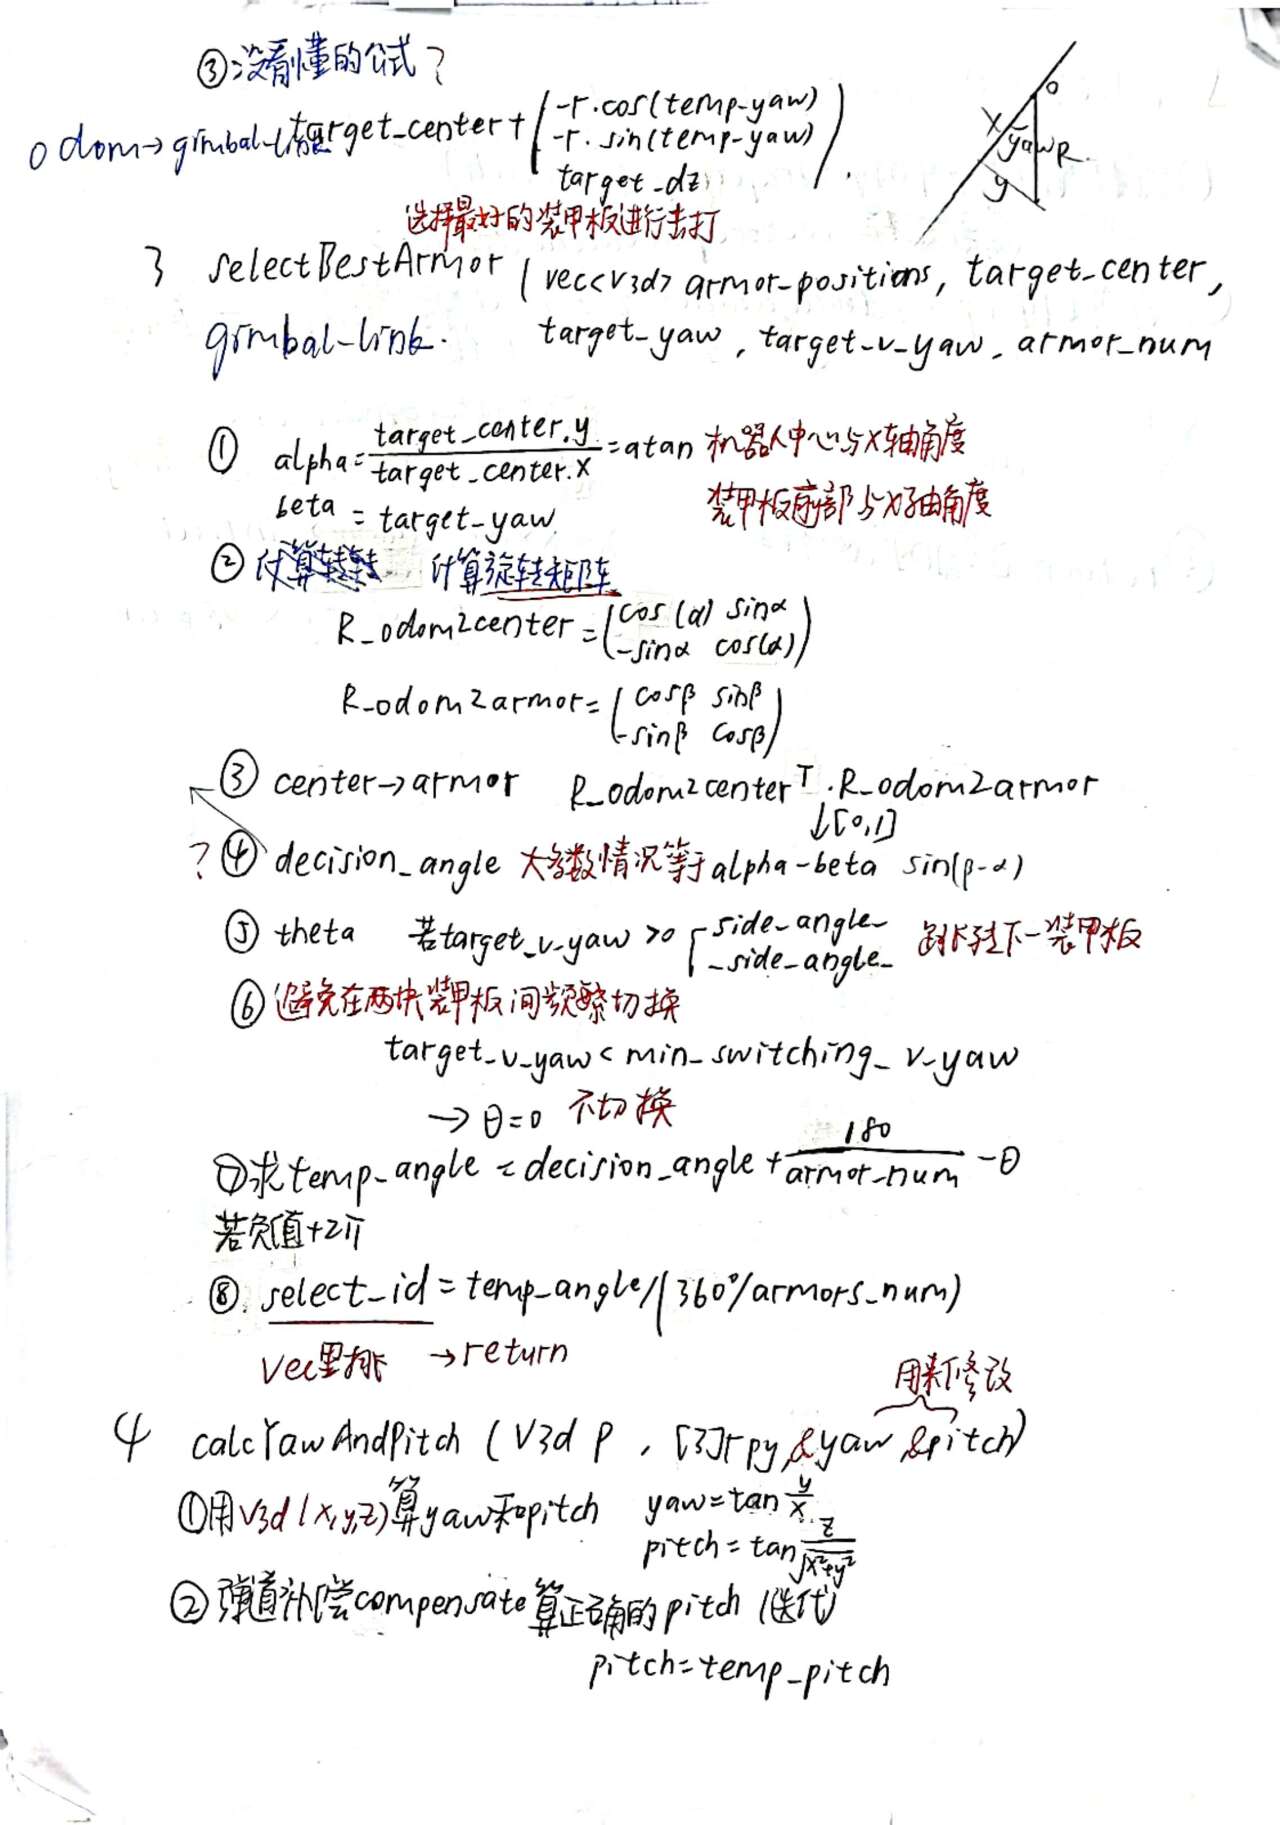 ③没看懂的公式?
odom→gimbal-link target_center+(-r·cos(temp-yaw)
-r·sin(temp-yaw)
target-dz).
O
X yaw R.
y
选择最好的装甲板进行击打
3 selectBestArmor (vec<V3d> armor-positions, target_center,
gimbal-link. target_yaw, target-v-yaw, armor_num
① alpha=target_center.y/target_center.x=atan 机器人中心与X轴角度
beta = target_yaw 装甲板前部与X轴角度
② 计算旋转矩阵
R_odom2center=(cos(α) sinα
-sinα cos(α))
R_odom2armor=(cosβ sinβ
-sinβ cosβ)
③ center→armor R_odom2centerᵀ·R_odom2armor
↓[0,1]
? ④ decision_angle 大多数情况等于alpha-beta sin(β-α)
⑤ theta 若target_v_yaw>0 {side_angle_
-side_angle_ 跳转到下一装甲板
⑥ 避免在两块装甲板间频繁切换
target-v_yaw<min_switching_v-yaw
→θ=0 不切换
⑦求temp_angle=decision_angle+180/armor-num-θ
若负值+2π
⑧. select_id=temp_angle/(360°/armors_num)
Vec里排 →return
用来修改
4 calcYawAndPitch (V3d p, [3]rpy,&yaw &pitch)
①用V3d(x,y,z)算yaw和pitch yaw=tan y/x
pitch=tan z/√x²+y²
②弹道补偿compensate算正确的pitch(迭代)
pitch=temp_pitch